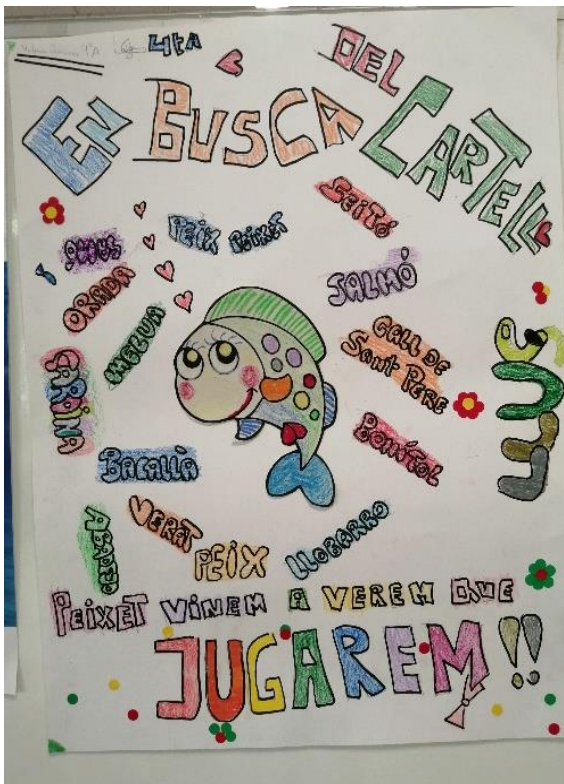 4tA
EN BUSCA DEL CARTELL
SEITÓ
PEIX PEIXET
SALMÓ
ORADA
GALL DE
SANT PERE
BONÍTOL
BACALLÀ
VERAT
ABADEJO
PEIX
LLOBARRO
PEIXET VINEM A VEREM QUE
JUGAREM!!